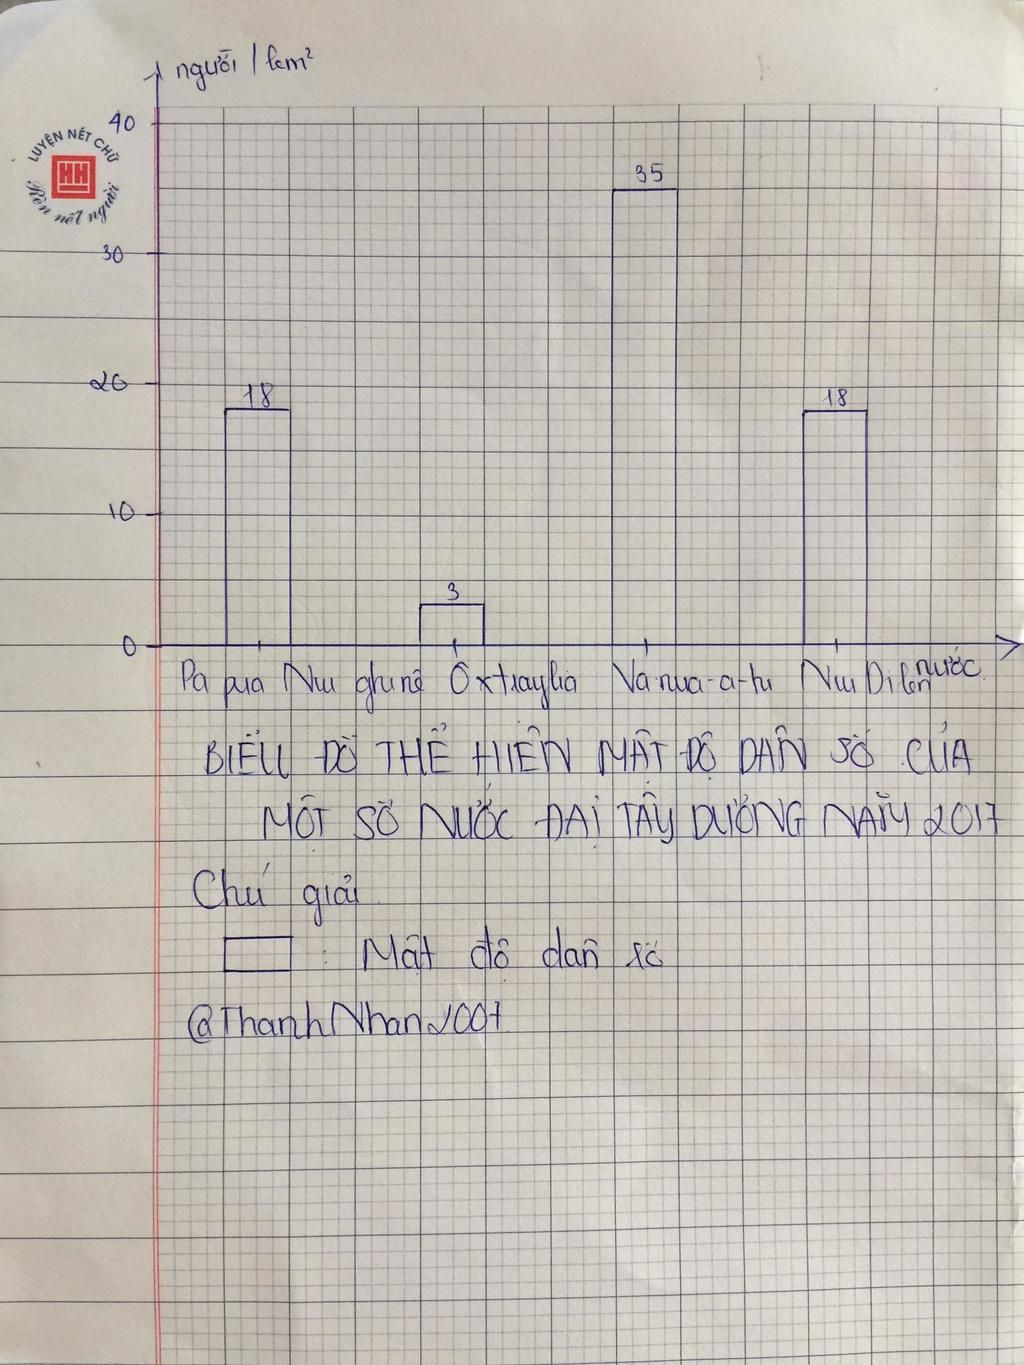 người / km²
40
LUYỆN NÉT CHỮ
HH
Rèn nết người
35
30
20
18
18
10
3
0
Pa pua Niu ghi nê Ôxtraylia Va nua-a-tu Niu Dilen nước
BIỂU ĐỒ THỂ HIỆN MẬT ĐỘ DÂN SỐ CỦA
MỘT SỐ NƯỚC ĐẠI TÂY DƯƠNG NĂM 2017
Chú giải
: Mật độ dân số
@ThanhNhan2007